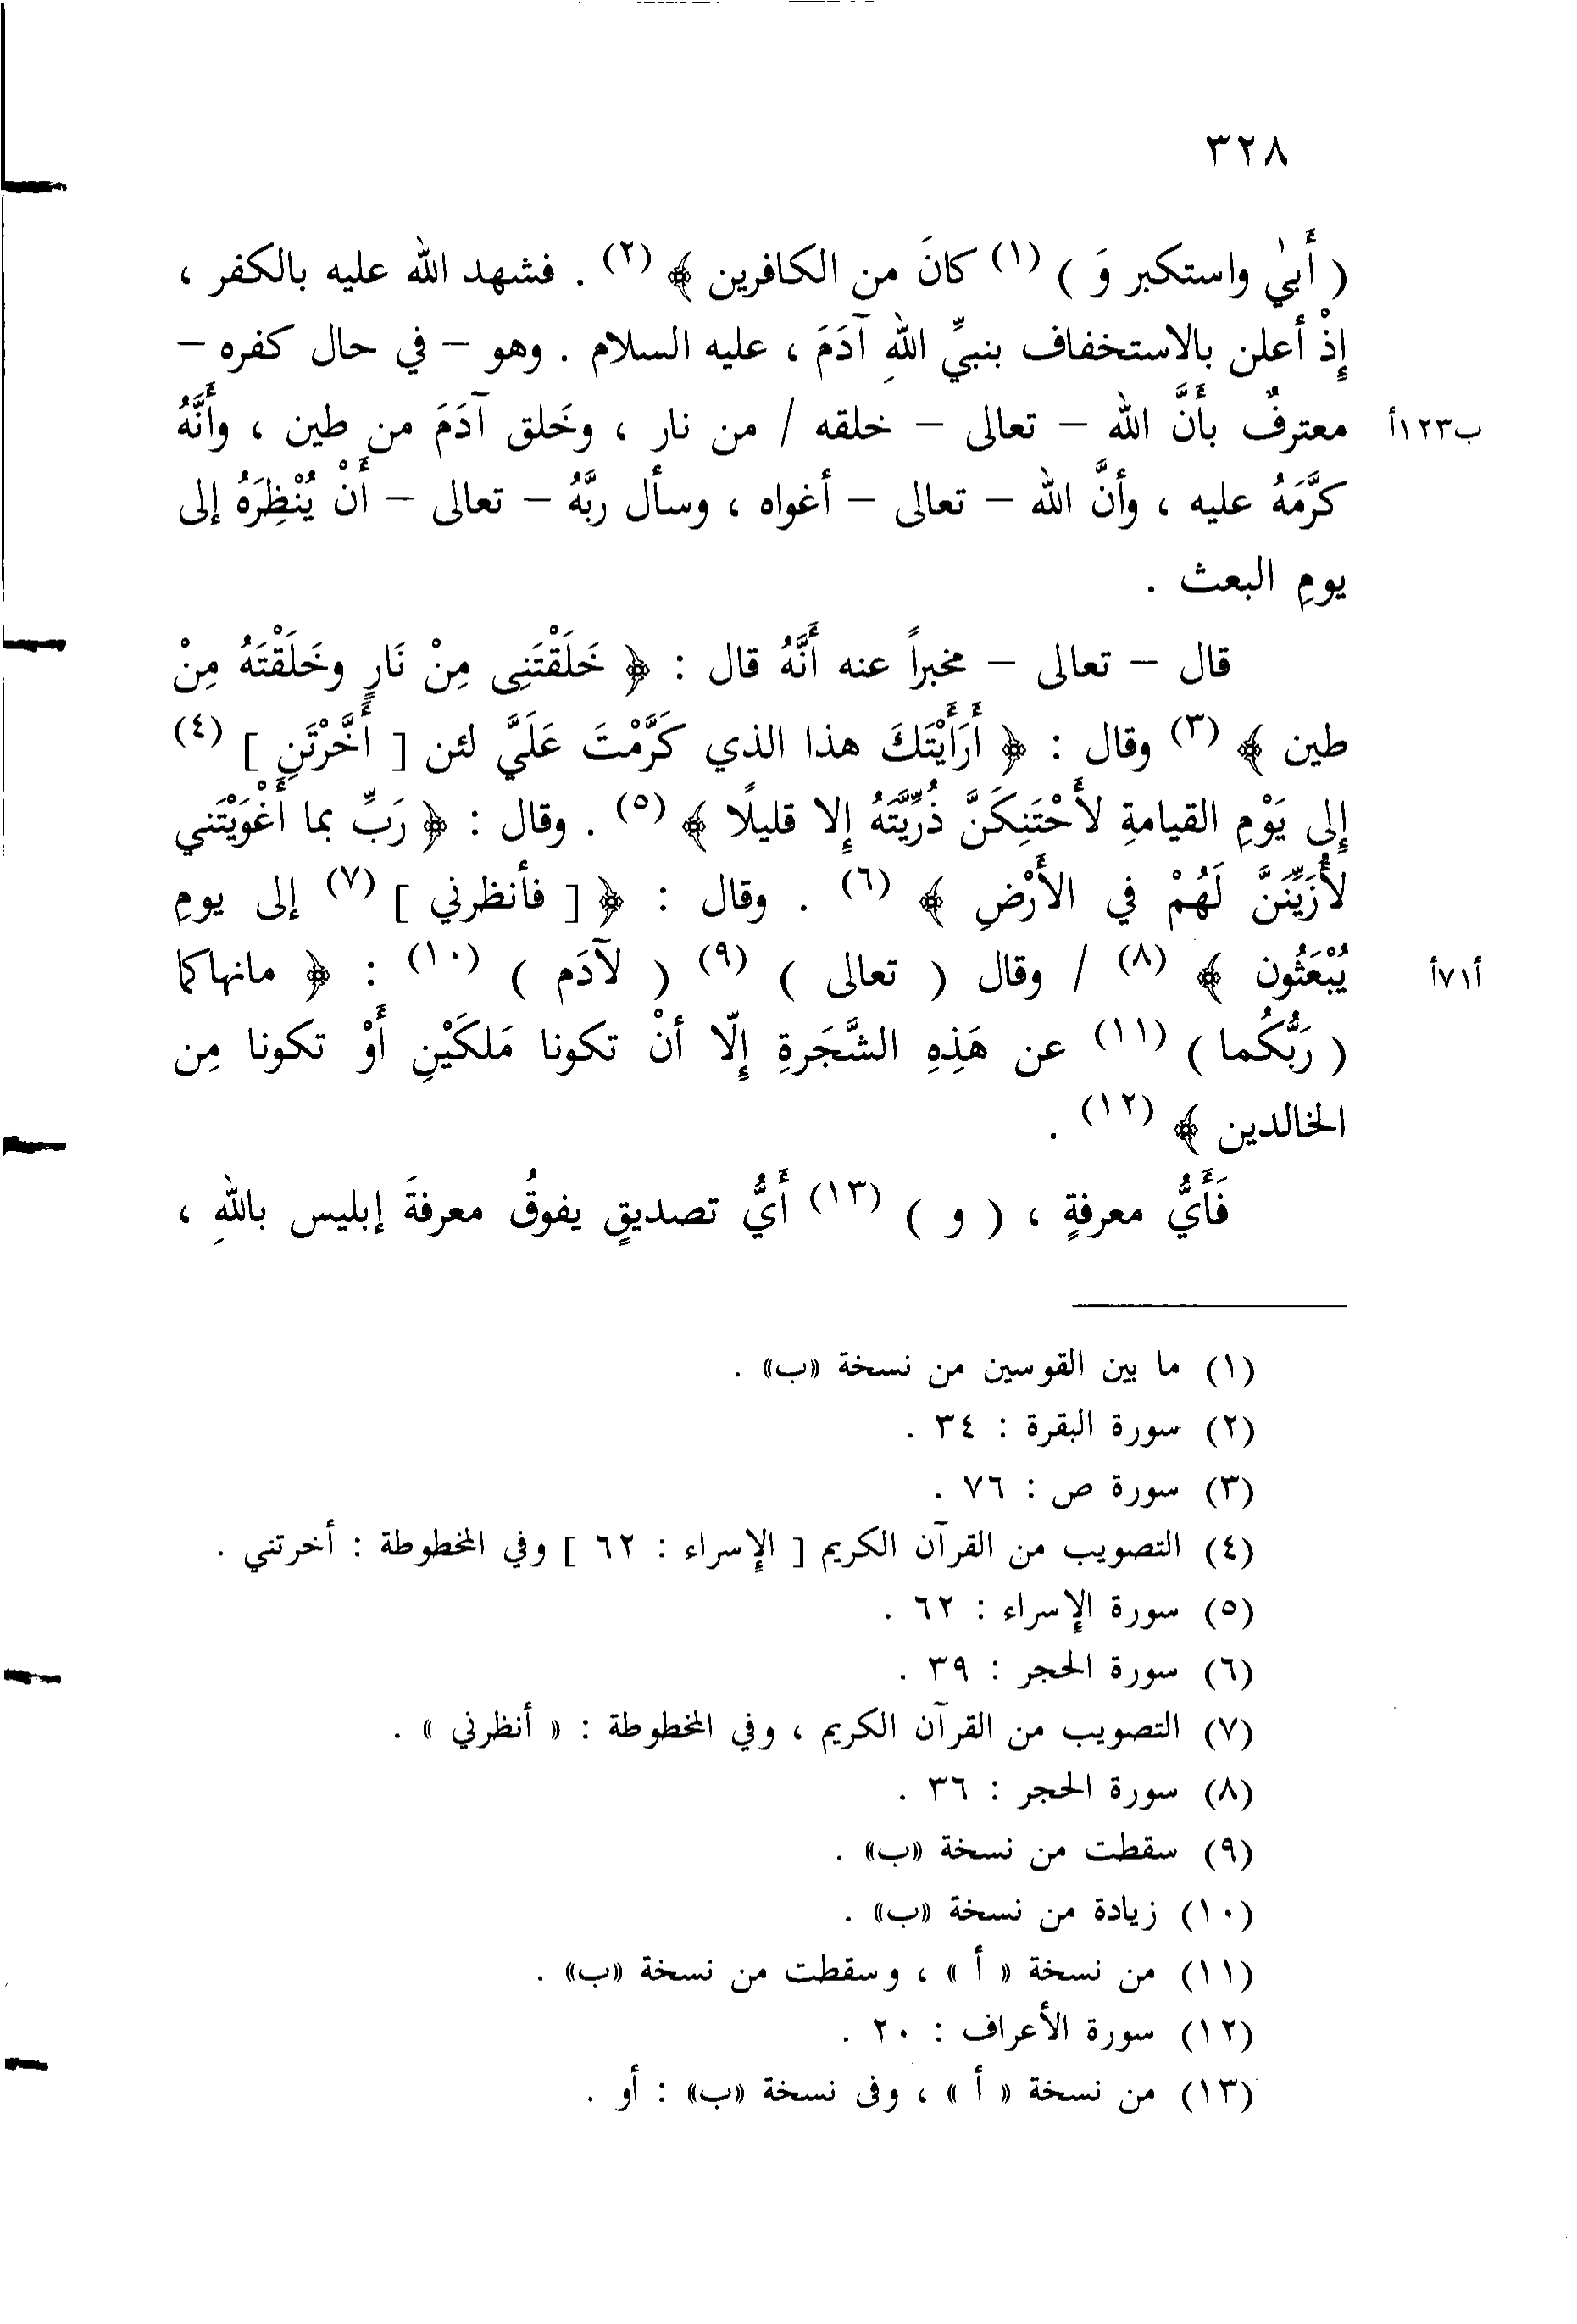 ٣٢٨
( أَبىٰ واستكبر وَ ) (١) كانَ من الكافرين ﴾ (٢) . فشهد الله عليه بالكفر ،
إِذْ أعلن بالاستخفاف بنبيِّ اللهِ آدَمَ ، عليه السلام . وهو – في حال كفره –
معترفٌ بأَنَّ الله – تعالى – خلقه / من نار ، وخَلق آدَمَ من طين ، وأَنَّهُ
ب١٢٣أ
كرَّمَهُ عليه ، وأنَّ الله – تعالى – أغواه ، وسأل ربَّهُ – تعالى – أَنْ يُنْظِرَهُ إلى
يومِ البعث .
قال – تعالى – مخبراً عنه أَنَّهُ قال : ﴿ خَلَقْتَنِى مِنْ نَارٍ وخَلَقْتَهُ مِنْ
طين ﴾ (٣) وقال : ﴿ أَرَأَيْتَكَ هذا الذي كَرَّمْتَ عَلَيَّ لئن [ أَخَّرْتَنِ ] (٤)
إِلى يَوْمِ القيامةِ لأَحْتَنِكَنَّ ذُرِّيَّتَهُ إِلا قليلًا ﴾ (٥) . وقال : ﴿ رَبِّ بما أَغْوَيْتَني
لأُزَيِّنَنَّ لَهُمْ في الأَرْضِ ﴾ (٦) . وقال : ﴿ [ فأنظرني ] (٧) إلى يومِ
يُبْعَثُون ﴾ (٨) / وقال ( تعالى ) (٩) ( لآدَم ) (١٠) : ﴿ مانهاكما
أ٧١أ
( رَبُّكُما ) (١١) عن هَذِهِ الشَّجَرةِ إِلّا أنْ تكونا مَلكَيْنِ أَوْ تكونا مِن
الخالدين ﴾ (١٢) .
فَأَيُّ معرفةٍ ، ( و ) (١٣) أَيُّ تصديقٍ يفوقُ معرفةَ إبليس باللهِ ،
(١) ما بين القوسين من نسخة «ب» .
(٢) سورة البقرة : ٣٤ .
(٣) سورة ص : ٧٦ .
(٤) التصويب من القرآن الكريم [ الإسراء : ٦٢ ] وفي المخطوطة : أخرتني .
(٥) سورة الإسراء : ٦٢ .
(٦) سورة الحجر : ٣٩ .
(٧) التصويب من القرآن الكريم ، وفي المخطوطة : « أنظرني » .
(٨) سورة الحجر : ٣٦ .
(٩) سقطت من نسخة «ب» .
(١٠) زيادة من نسخة «ب» .
(١١) من نسخة « أ » ، وسقطت من نسخة «ب» .
(١٢) سورة الأعراف : ٢٠ .
(١٣) من نسخة « أ » ، وفى نسخة «ب» : أو .